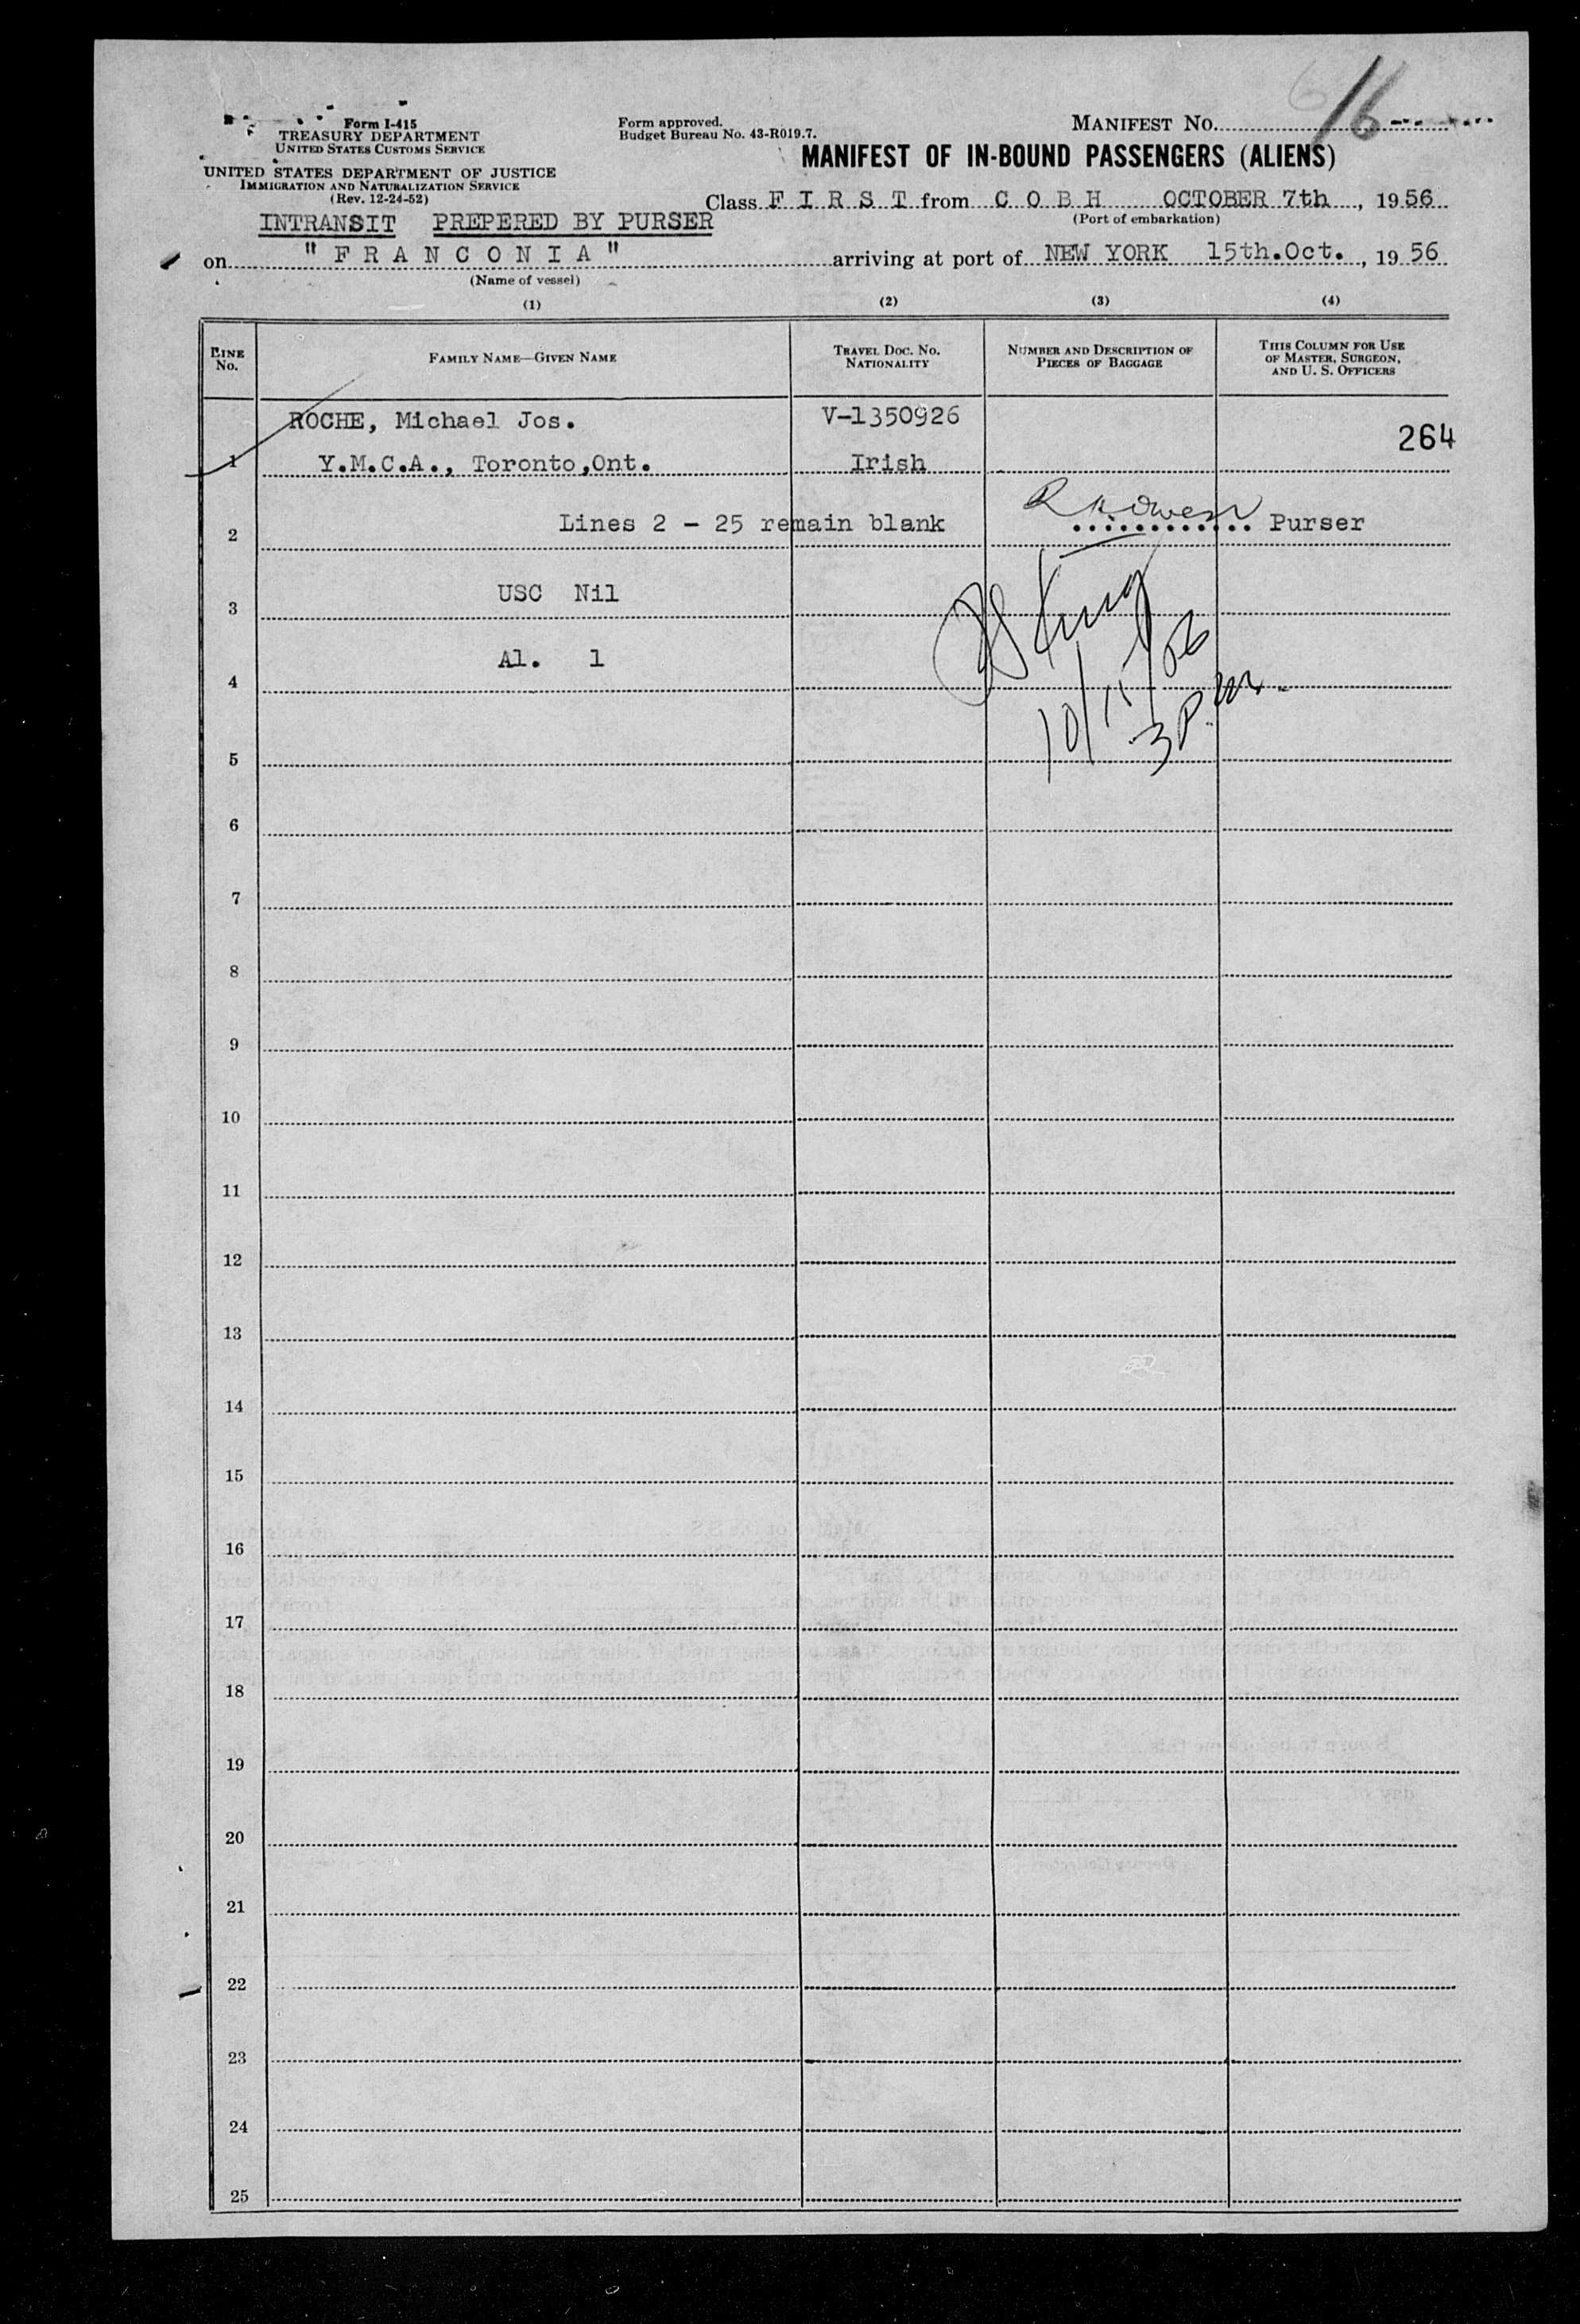 Form I-415
TREASURY DEPARTMENT
UNITED STATES CUSTOMS SERVICE
UNITED STATES DEPARTMENT OF JUSTICE
IMMIGRATION AND NATURALIZATION SERVICE
(Rev. 12-24-52)
Form approved.
Budget Bureau No. 43-R019.7.
MANIFEST NO. 16
MANIFEST OF IN-BOUND PASSENGERS (ALIENS)
Class F I R S T from C O B H OCTOBER 7th, 1956
(Port of embarkation)
INTRANSIT PREPERED BY PURSER
on "F R A N C O N I A" arriving at port of NEW YORK 15th.Oct., 1956
(Name of vessel)
(1) (2) (3) (4)
LINE No. FAMILY NAME—GIVEN NAME TRAVEL DOC. NO. NATIONALITY NUMBER AND DESCRIPTION OF PIECES OF BAGGAGE THIS COLUMN FOR USE OF MASTER, SURGEON, AND U. S. OFFICERS
ROCHE, Michael Jos. V-1350926
264
1 Y.M.C.A., Toronto,Ont. Irish
2 Lines 2 - 25 remain blank Purser
3 USC Nil
King
4 Al. 1
10/15/56
3 P.m.
5
6
7
8
9
10
11
12
13
14
15
16
17
18
19
20
21
22
23
24
25